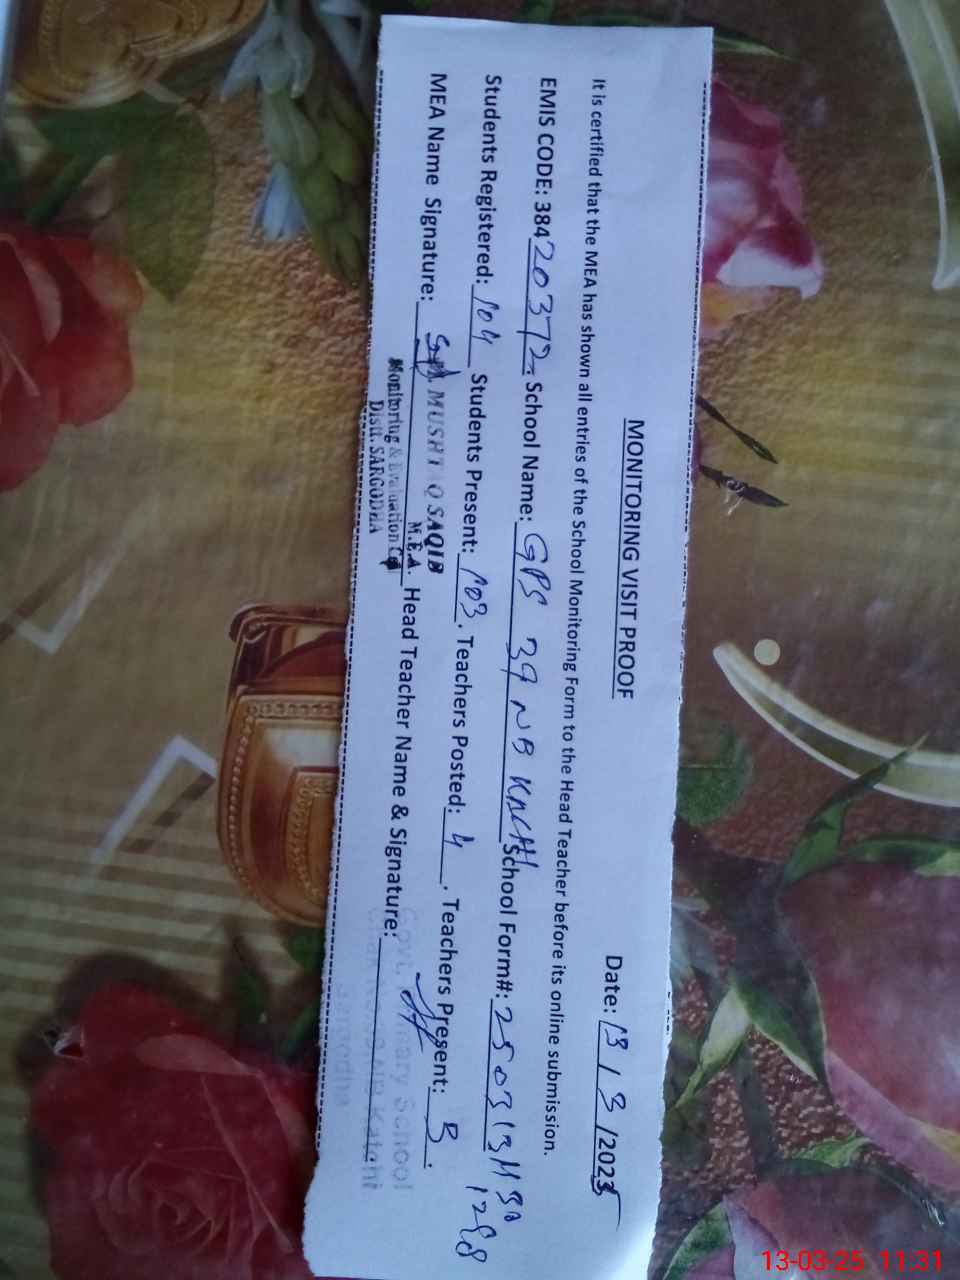 MONITORING VISIT PROOF
Date: 13 / 3 /2025
It is certified that the MEA has shown all entries of the School Monitoring Form to the Head Teacher before its online submission.
EMIS CODE: 38420372. School Name: GPS 39 NB KACHI School Form#: 250313
1298
Students Registered: 104 Students Present: 103. Teachers Posted: 4. Teachers Present: 3.
MUSHTAQ SAQIB
M.E.A.
MEA Name Signature: Head Teacher Name & Signature:
Monitoring & Evaluation
Distt. SARGODHA
Govt. Primary School
NB Katchi
Sargodha
13-03-25 11:31